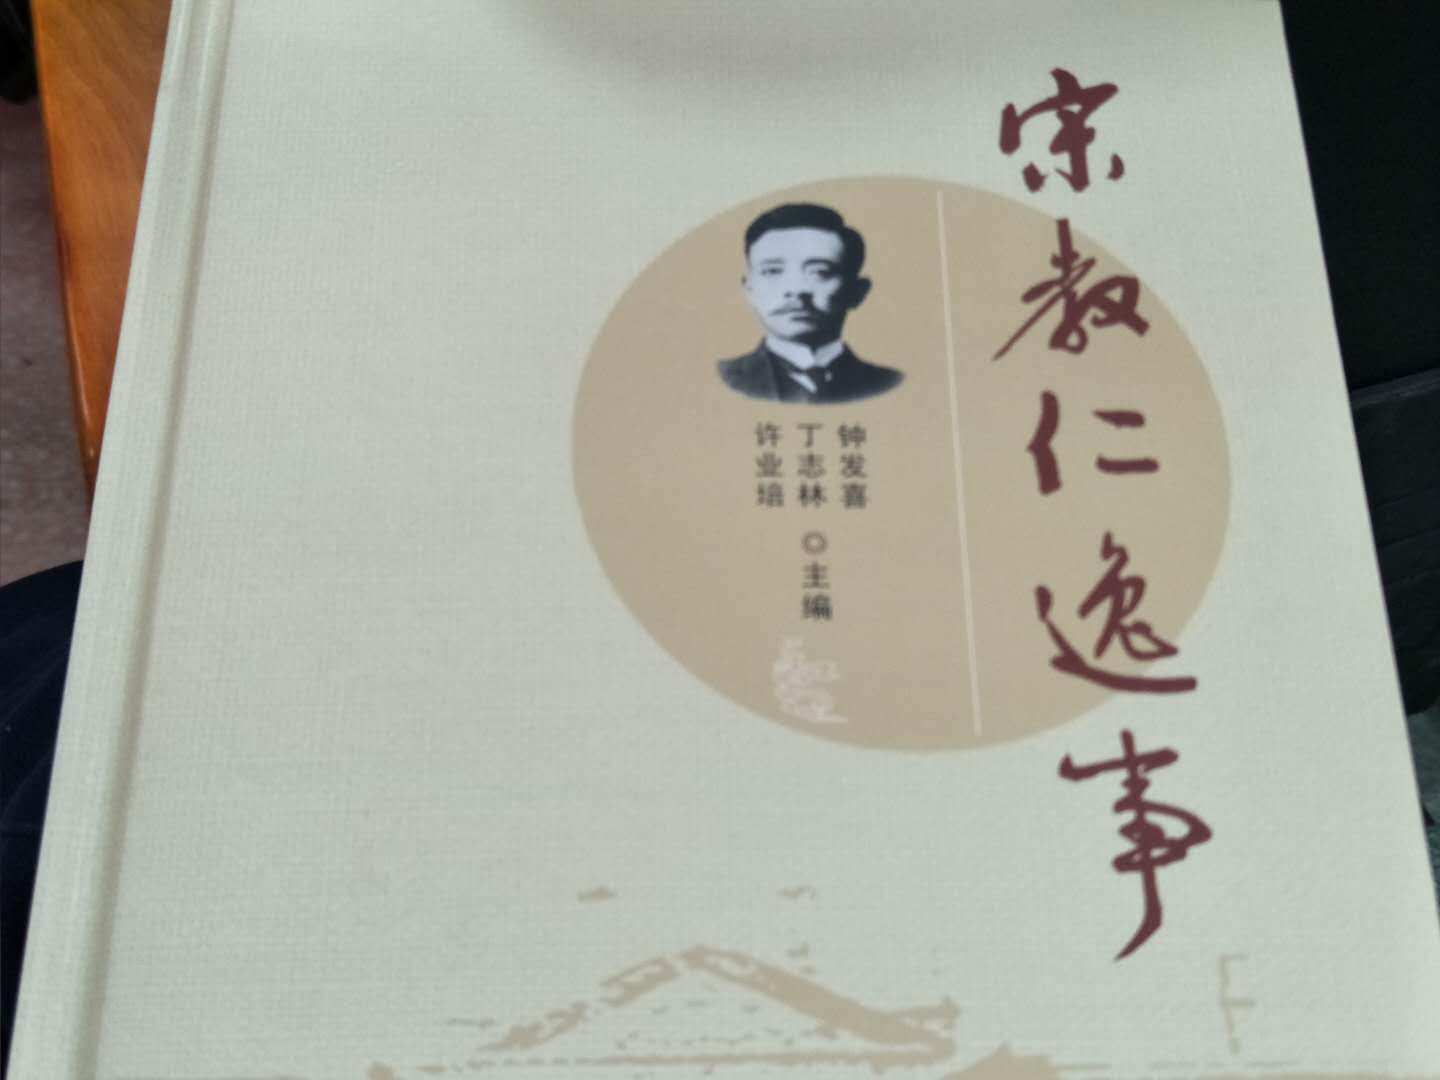 宋教仁逸事
钟发喜
丁志林
许业培
◎主编